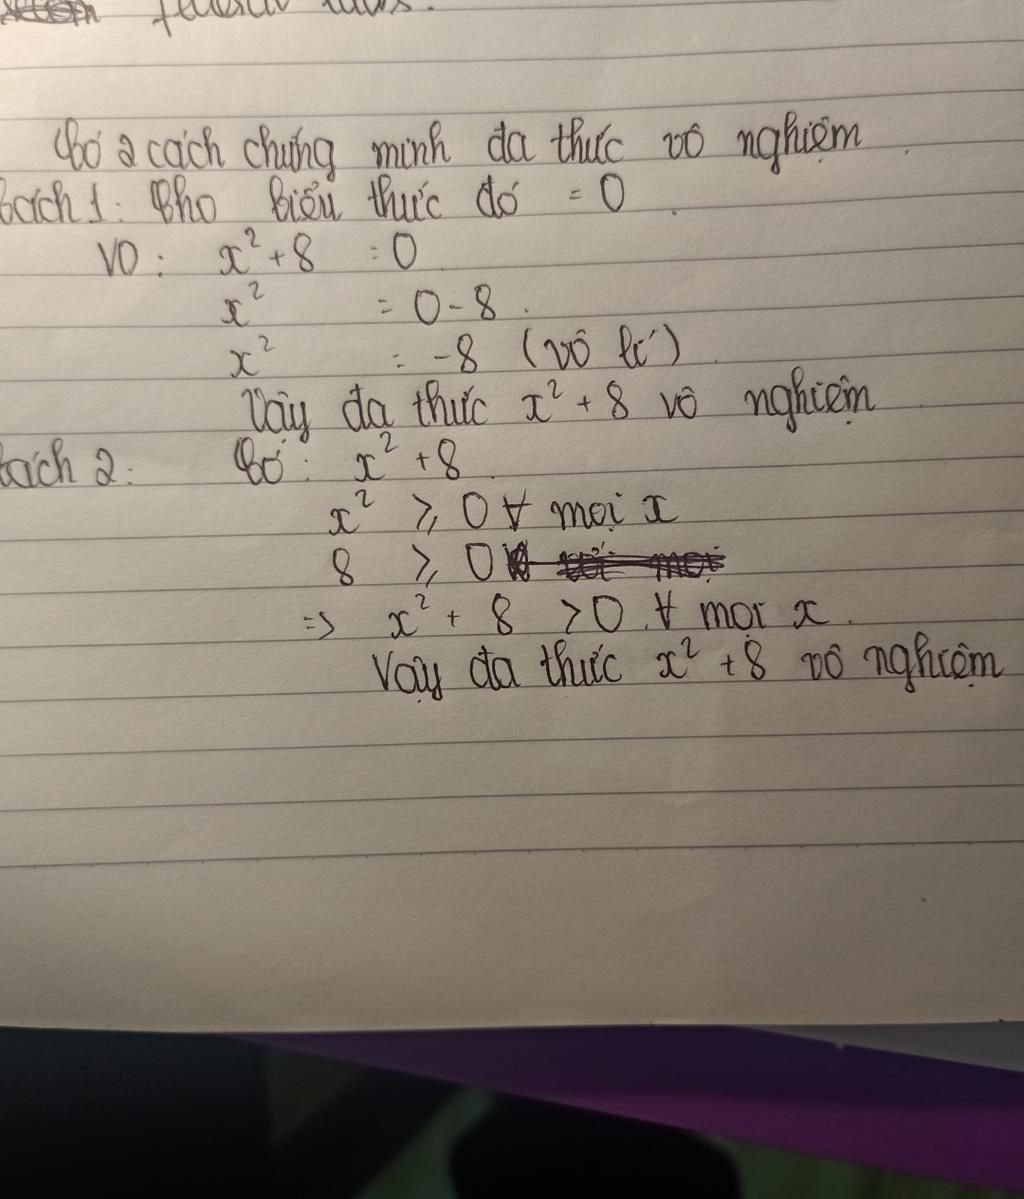 federal laws.
Có 2 cách chứng minh đa thức vô nghiệm.
Cách 1: Cho biểu thức đó = 0.
VD: x² + 8 = 0
x² = 0 - 8.
x² = -8 (vô lí)
Vậy đa thức x² + 8 vô nghiệm
Cách 2: Có: x² + 8.
x² ⩾ 0 ∀ mọi x
8 ⩾ 0
=> x² + 8 > 0 ∀ mọi x.
Vậy đa thức x² + 8 vô nghiệm